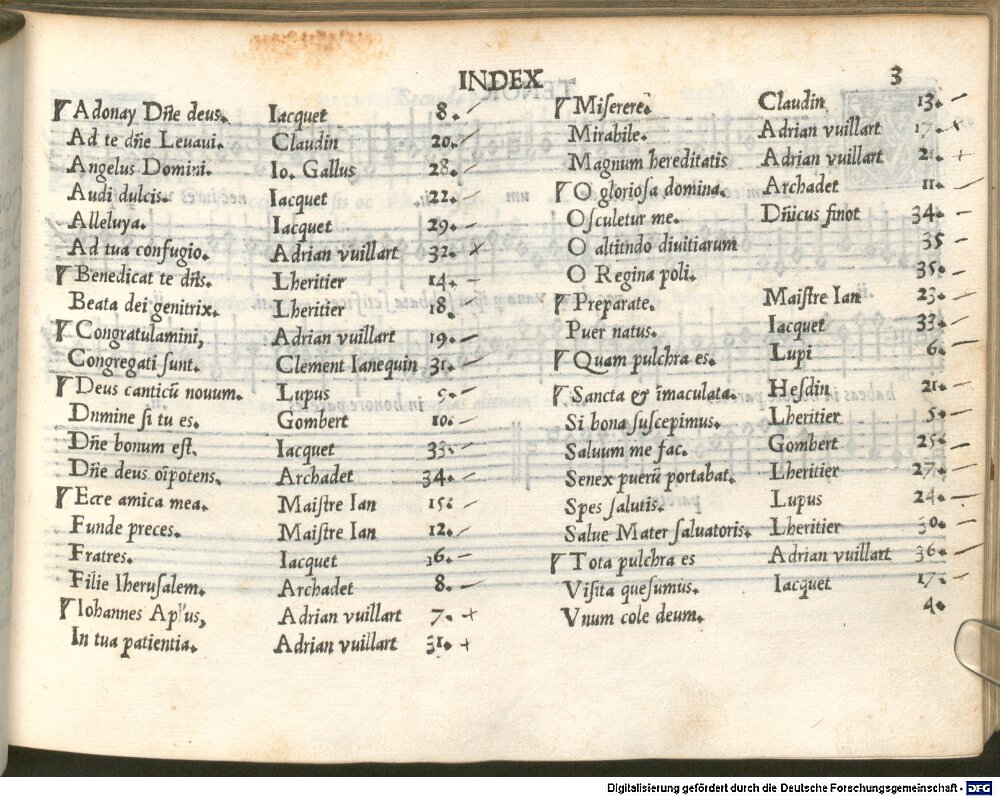 INDEX 3
Adonay Dñe deus. Iacquet 8.
Ad te dñe Leuaui. Claudin 20.
Angelus Domini. Io. Gallus 28.
Audi dulcis. Iacquet 22.
Alleluya. Iacquet 29.
Ad tua confugio. Adrian vuillart 32.
Benedicat te dñs. Lheritier 14
Beata dei genitrix. Lheritier 18.
Congratulamini, Adrian vuillart 19.
Congregati sunt. Clement Ianequin 31.
Deus canticũ nouum. Lupus 9.
Dnmine si tu es. Gombert 10.
Dñe bonum est. Iacquet 33.
Dñe deus oĩpotens. Archadet 34.
Ecce amica mea. Maistre Ian 15.
Funde preces. Maistre Ian 12.
Fratres. Iacquet 16.
Filie Iherusalem. Archadet 8.
Iohannes Apl'us, Adrian vuillart 7.
In tua patientia. Adrian vuillart 31.
Miserere. Claudin 13.
Mirabile. Adrian vuillart 17.
Magnum hereditatis Adrian vuillart 21.
O gloriosa domina. Archadet 11.
Osculetur me. Dñicus finot 34.
O altitndo diuitiarum 35
O Regina poli. 35.
Preparate. Maistre Ian 23.
Puer natus. Iacquet 33.
Quam pulchra es. Lupi 6.
Sancta & ĩmaculata. Hesdin 21.
Si bona suscepimus. Lheritier 5.
Saluum me fac. Gombert 25.
Senex puerũ portabat. Lheritier 27.
Spes salutis. Lupus 24.
Salue Mater saluatoris. Lheritier 30.
Tota pulchra es Adrian vuillart 36.
Visita quesumus. Iacquet 17.
Vnum cole deum. 4.
Digitalisierung gefördert durch die Deutsche Forschungsgemeinschaft - DFG